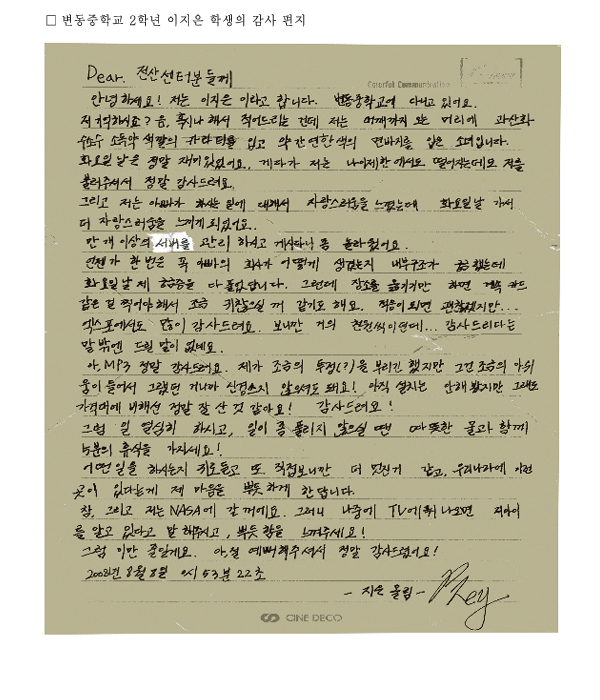 □ 변동중학교 2학년 이지은 학생의 감사 편지
Dear. 전산센터분들께
Colorful Communication
안녕하세요! 저는 이지은 이라고 합니다. 변동중학교에 다니고 있어요.
저 기억하시죠? 음, 혹시나 해서 적어드리는 건데 저는 어깨까지 오는 머리에 과산화
수소수 소독약 색깔의 카라티를 입고 약간 연한색의 면바지를 입은 소녀입니다.
화요일날은 정말 재미있었어요. 게다가 저는 나이제한에서도 떨어지는데도 저를
불러주셔서 정말 감사드려요.
그리고 저는 아빠가 하시는 일에 대해서 자랑스러움을 느꼈는데 화요일날 가서
더 자랑스러움을 느끼게 되었어요.
만 개 이상의 서버를 관리 하시고 계시다니 좀 놀라웠어요.
언젠가 한 번은 꼭 아빠의 회사가 어떻게 생겼는지 내부구조가 궁금했는데
화요일날 제 궁금증을 다 풀었답니다. 그런데 장소를 옮기기만 하면 계속 카드
같은 걸 찍어야 해서 조금 귀찮으실 꺼 같기도 해요. 적응이 되면 괜찮겠지만...
엑스포에서도 많이 감사드려요. 보니깐 거의 천원씩이던데... 감사드리다는
말 밖엔 드릴 말이 없네요.
아, MP3 정말 감사드려요. 제가 조금의 투정(?)을 부리긴 했지만 그건 조금의 아쉬
움이 들어서 그랬던 거니까 신경쓰지 않으셔도 돼요! 아직 설치는 안해 봤지만 그래도
가격대에 비해선 정말 잘 산 것 같아요! 감사드려요!
그럼 일 열심히 하시고, 일이 좀 풀리지 않으실 땐 따뜻한 물과 함께
5분의 휴식을 가지세요!
어떤일을 하시는지 귀로듣고 또 직접보니깐 더 멋진거 같고, 우리나라에 이런
곳이 있다는게 제 마음을 뿌듯하게 한답니다.
참, 그리고 저는 NASA에 갈 꺼에요. 그러니 나중에 TV에 나오면 저아이
를 알고 있다고 말 해주시고, 뿌듯함을 느껴주세요!
그럼 이만 줄일게요. 아, 절 예뻐해주셔서 정말 감사드렸어요!
2008년 8월 8일 0시 53분 22초
- 지은 올림 -
CINE DECO